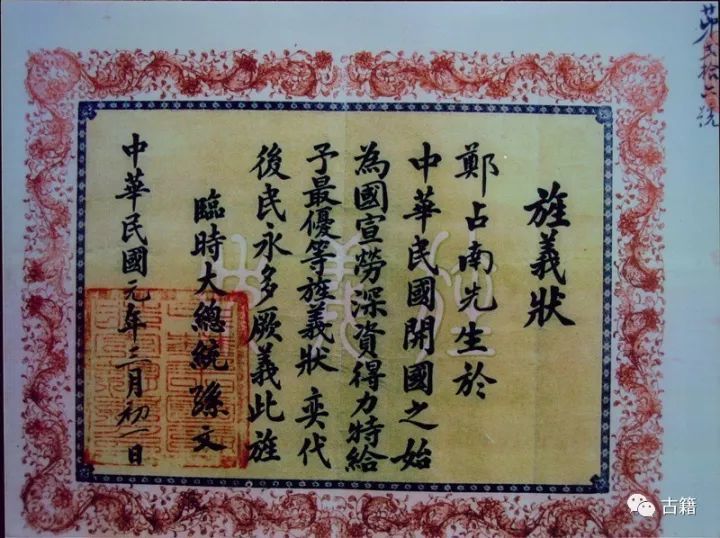 旌義狀
鄭占南先生於
中華民國開國之始
為國宣勞深資得力特給
予最優等旌義狀 奕代
後民永多厥義此旌
臨時大總統孫文
中華民國元年三月初一日
旌義狀
古籍